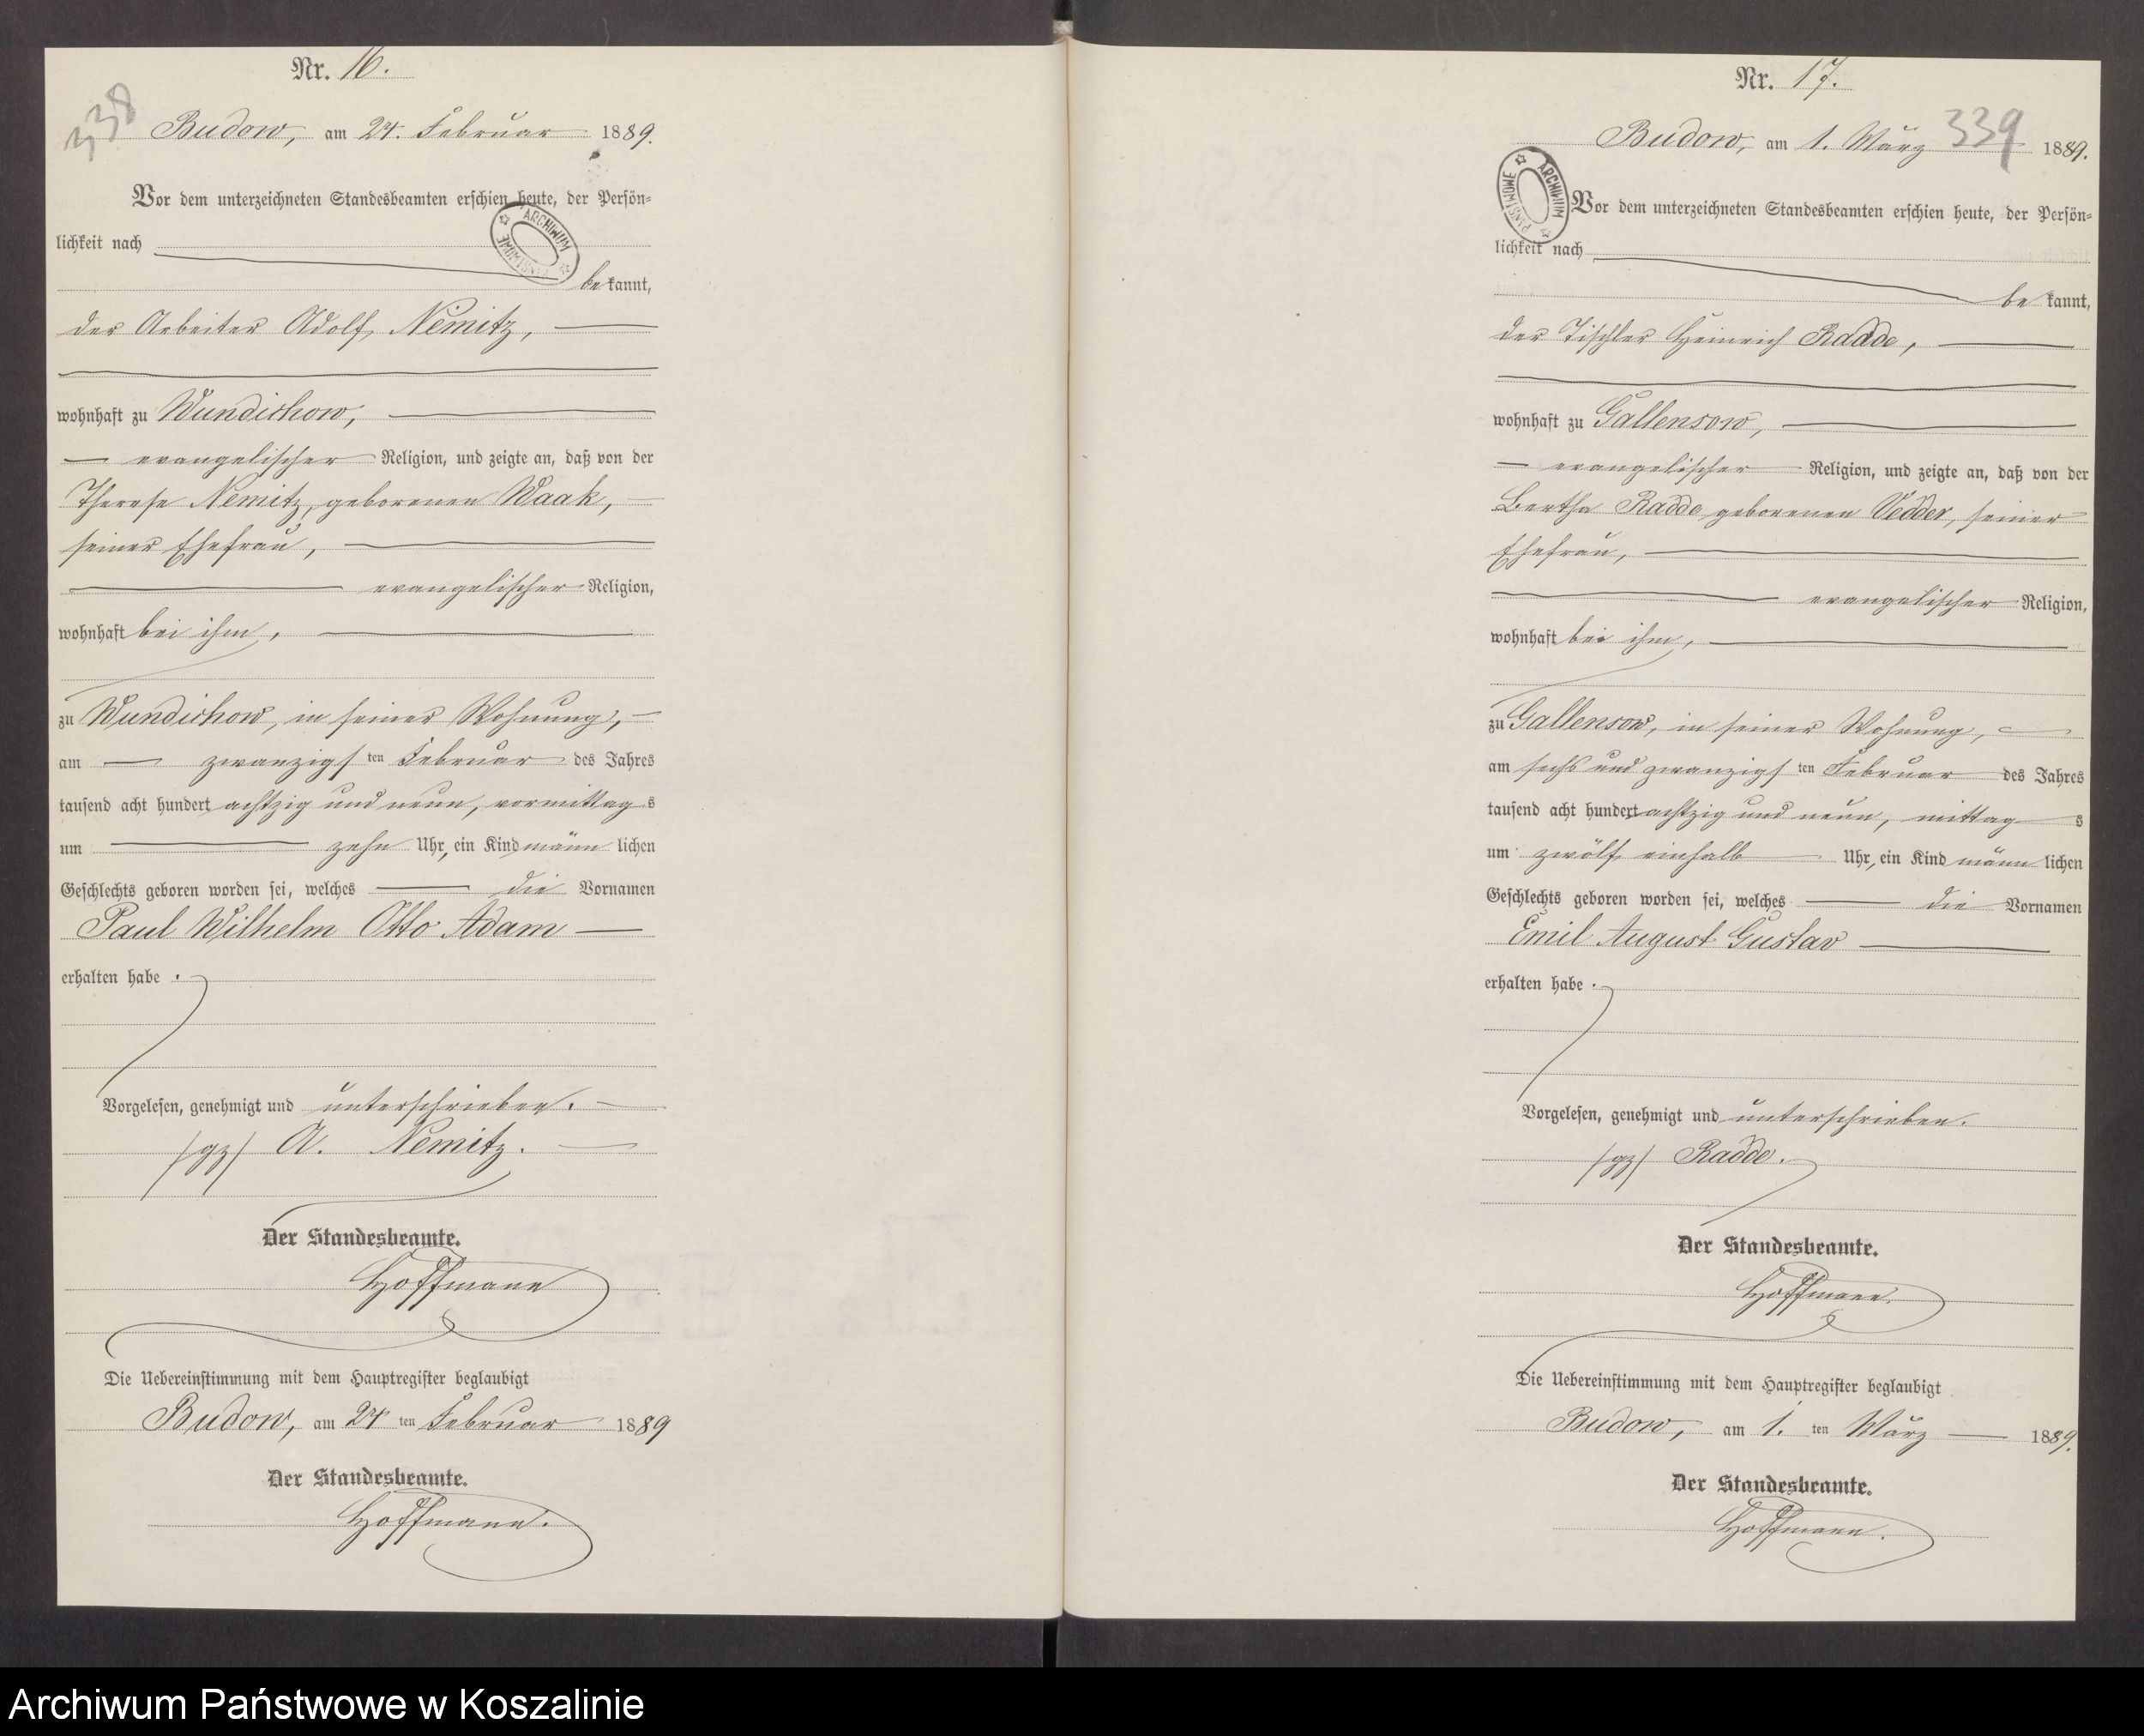 Nr. 16.
338
Budow, am 24. Februar 1889.
Vor dem unterzeichneten Standesbeamten erschien heute, der Persön-
lichkeit nach
ARCHIWUM PAŃSTWOWE
bekannt,
der Arbeiter Adolf Nemitz,
wohnhaft zu Wundichow,
evangelischer Religion, und zeigte an, daß von der
Therese Nemitz, geborenen Waak,
seiner Ehefrau,
evangelischer Religion,
wohnhaft bei ihm,
zu Wundichow, in seiner Wohnung,
am zwanzigsten Februar des Jahres
tausend acht hundert achtzig und neun, vormittags
um zehn Uhr, ein Kind männlichen
Geschlechts geboren worden sei, welches die Vornamen
Paul Wilhelm Otto Adam
erhalten habe.
Vorgelesen, genehmigt und unterschrieben.
/gz/ A. Nemitz.
Der Standesbeamte.
Hoffmann
Die Uebereinstimmung mit dem Hauptregister beglaubigt
Budow, am 24ten Februar 1889
Der Standesbeamte.
Hoffmann.
Nr. 17.
339
Budow, am 1. März 1889.
ARCHIWUM PAŃSTWOWE
Vor dem unterzeichneten Standesbeamten erschien heute, der Persön-
lichkeit nach
bekannt,
der Tischler Heinrich Radde,
wohnhaft zu Gallensow,
evangelischer Religion, und zeigte an, daß von der
Bertha Radde geborenen Vedder, seiner
Ehefrau,
evangelischer Religion,
wohnhaft bei ihm,
zu Gallensow, in seiner Wohnung,
am sechs und zwanzigsten Februar des Jahres
tausend acht hundert achtzig und neun, mittags
um zwölf einhalb Uhr, ein Kind männlichen
Geschlechts geboren worden sei, welches die Vornamen
Emil August Gustav
erhalten habe.
Vorgelesen, genehmigt und unterschrieben.
/gz/ Radde.
Der Standesbeamte.
Hoffmann.
Die Uebereinstimmung mit dem Hauptregister beglaubigt
Budow, am 1. ten März 1889.
Der Standesbeamte.
Hoffmann.
Archiwum Państwowe w Koszalinie